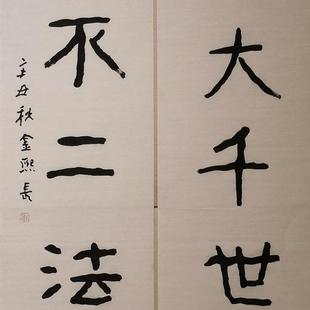 大千世
不二法
辛丑秋金熙長